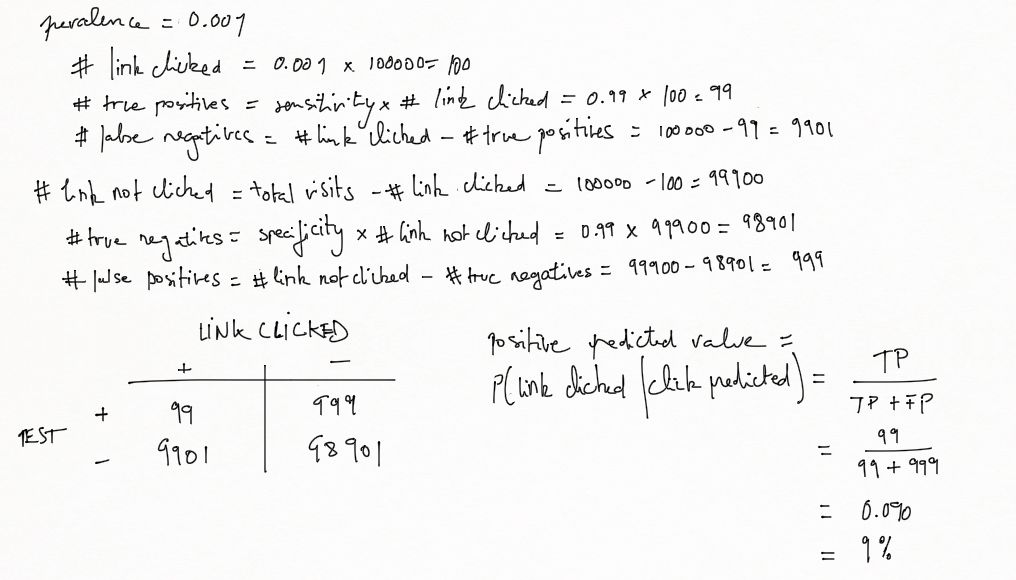 prevalence = 0.001
# link clicked = 0.001 x 100000 = 100
# true positives = sensitivity x # link clicked = 0.99 x 100 = 99
# false negatives = # link clicked - # true positives = 100000 - 99 = 9901
# link not clicked = total visits - # link clicked = 100000 - 100 = 99900
# true negatives = specificity x # link not clicked = 0.99 x 99900 = 98901
# false positives = # link not clicked - # true negatives = 99900 - 98901 = 999
LINK CLICKED
+ -
TEST + 99 999
- 9901 98901
positive predicted value =
P(link clicked | click predicted) = TP / TP + FP
= 99 / 99 + 999
= 0.090
= 9%